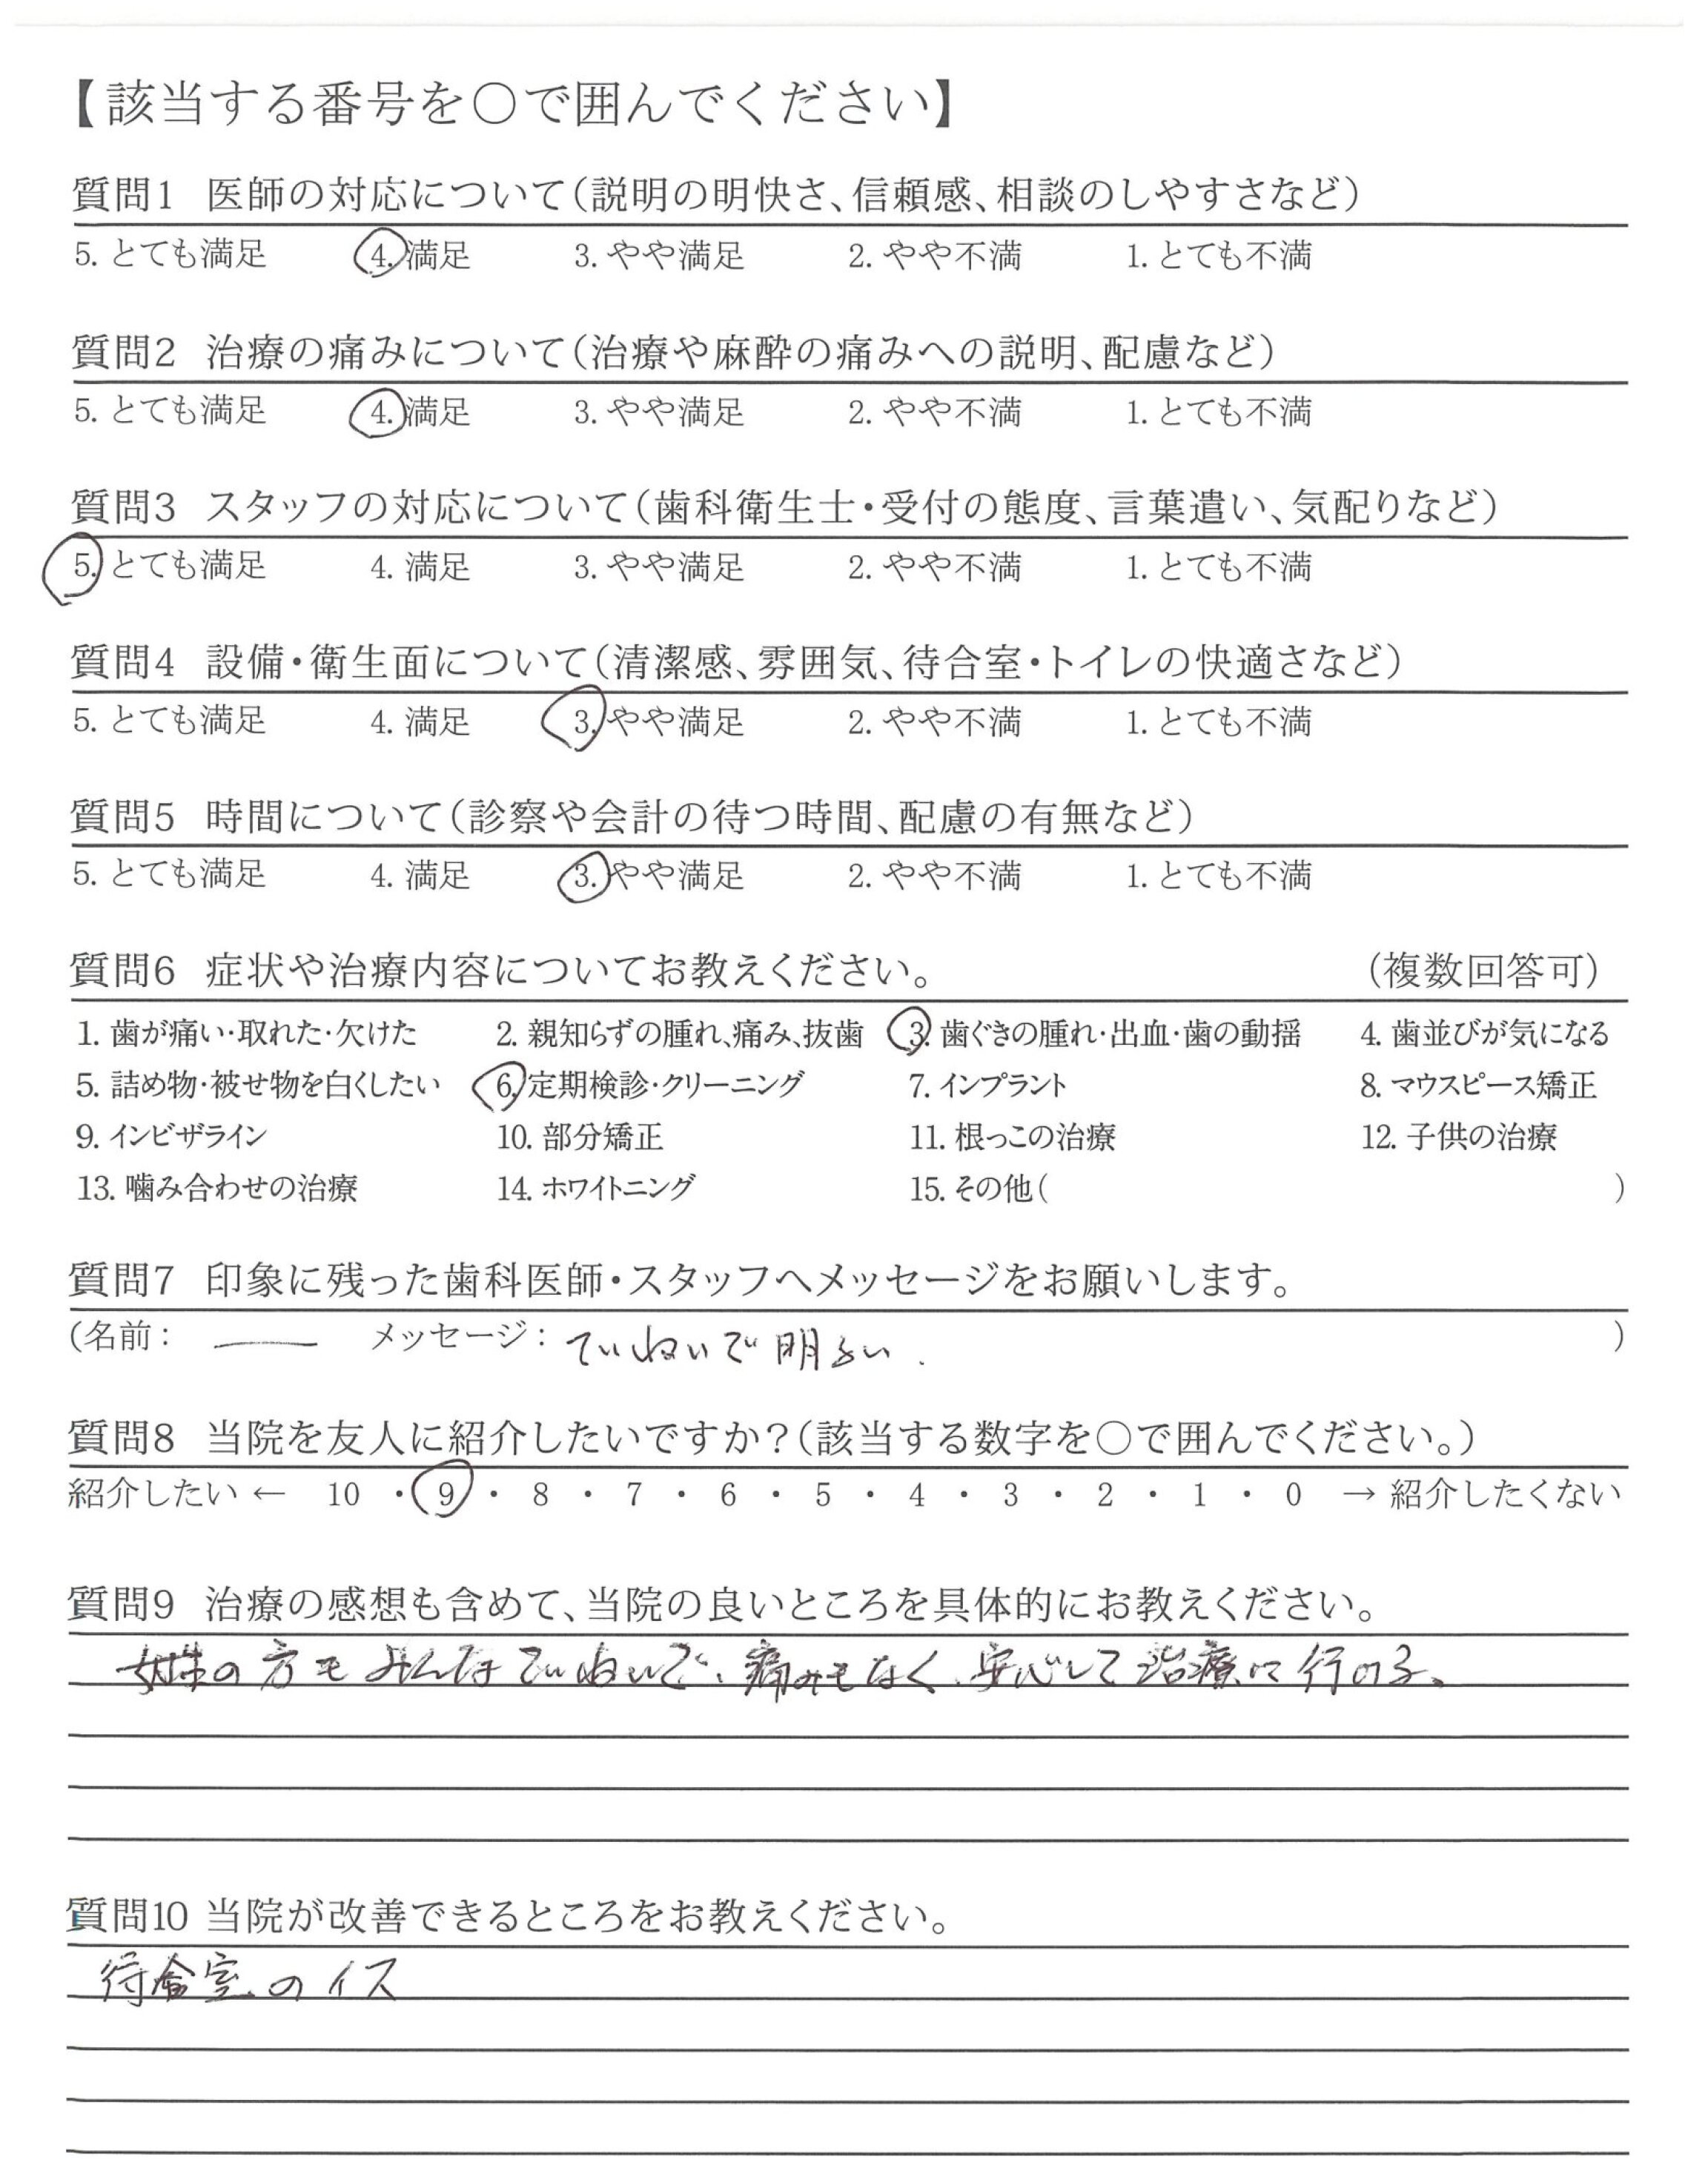 【該当する番号を○で囲んでください】
質問1 医師の対応について（説明の明快さ、信頼感、相談のしやすさなど）
5. とても満足 4. 満足 3. やや満足 2. やや不満 1. とても不満
質問2 治療の痛みについて（治療や麻酔の痛みへの説明、配慮など）
5. とても満足 4. 満足 3. やや満足 2. やや不満 1. とても不満
質問3 スタッフの対応について（歯科衛生士・受付の態度、言葉遣い、気配りなど）
5. とても満足 4. 満足 3. やや満足 2. やや不満 1. とても不満
質問4 設備・衛生面について（清潔感、雰囲気、待合室・トイレの快適さなど）
5. とても満足 4. 満足 3. やや満足 2. やや不満 1. とても不満
質問5 時間について（診察や会計の待つ時間、配慮の有無など）
5. とても満足 4. 満足 3. やや満足 2. やや不満 1. とても不満
質問6 症状や治療内容についてお教えください。 （複数回答可）
1. 歯が痛い・取れた・欠けた 2. 親知らずの腫れ、痛み、抜歯 3. 歯ぐきの腫れ・出血・歯の動揺 4. 歯並びが気になる
5. 詰め物・被せ物を白くしたい 6. 定期検診・クリーニング 7. インプラント 8. マウスピース矯正
9. インビザライン 10. 部分矯正 11. 根っこの治療 12. 子供の治療
13. 噛み合わせの治療 14. ホワイトニング 15. その他（ ）
質問7 印象に残った歯科医師・スタッフへメッセージをお願いします。
（名前： — メッセージ：ていねいで明るい. ）
質問8 当院を友人に紹介したいですか？（該当する数字を○で囲んでください。）
紹介したい ← 10 ・ 9 ・ 8 ・ 7 ・ 6 ・ 5 ・ 4 ・ 3 ・ 2 ・ 1 ・ 0 → 紹介したくない
質問9 治療の感想も含めて、当院の良いところを具体的にお教えください。
女性の方もみんなていねいで、痛みもなく、安心して治療に行ける、
質問10 当院が改善できるところをお教えください。
待合室のイス